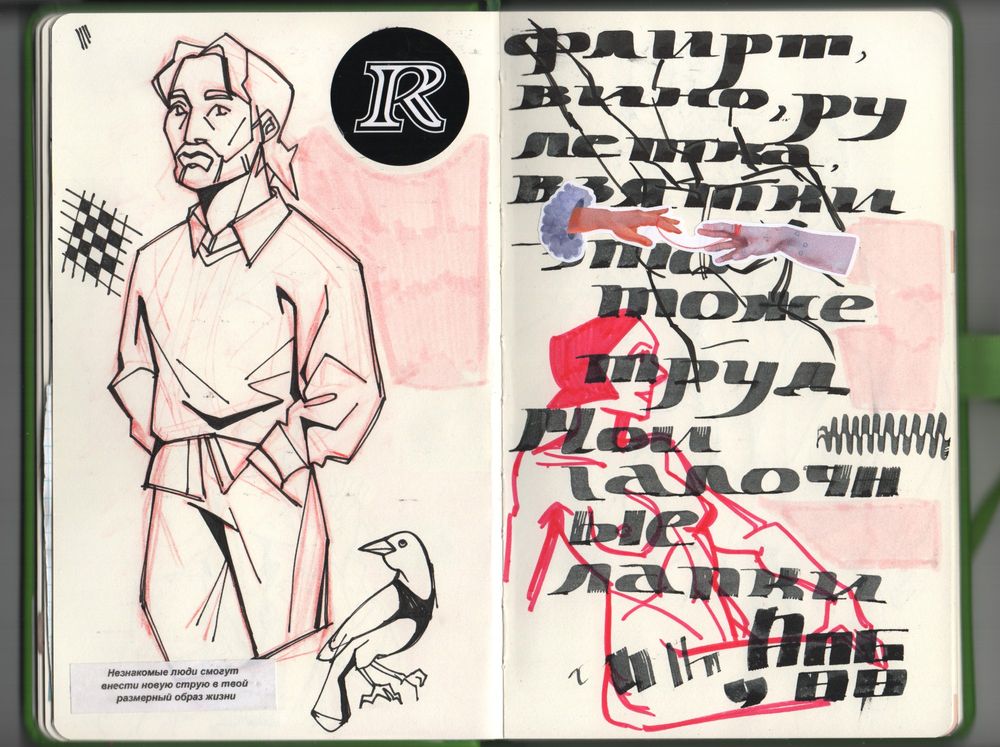 R
Незнакомые люди смогут
внести новую струю в твой
размерный образ жизни
флирт,
вино, ру
летка,
взятки
это
тоже
труд
Мои
галочн
ые
лапки